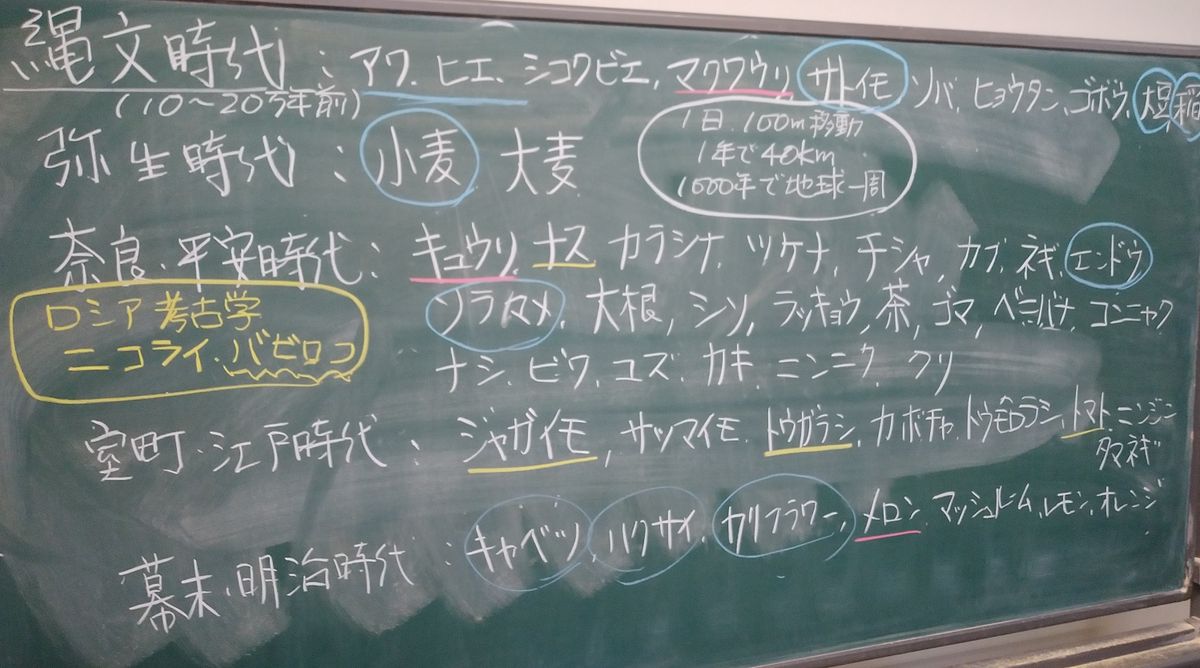 縄文時代：アワ、ヒエ、シコクビエ、マクワウリ、サトイモ ソバ、ヒョウタン、ゴボウ、大豆 稲
(10～20万年前)
1日、100m移動
1年で40km
1000年で地球一周
弥生時代：小麦 大麦
奈良、平安時代：キュウリ、ナス カラシナ、ツケナ、チシャ、カブ、ネギ、エンドウ
ソラマメ、大根、シソ、ラッキョウ、茶、ゴマ、ベニバナ、コンニャク
ナシ、ビワ、コズ、カキ、ニンニク、クリ
ロシア考古学
ニコライ・バビロコ
室町・江戸時代：ジャガイモ、サツマイモ、トウガラシ、カボチャ、トウモロコシ、トマト、ニンジン
タマネギ
幕末、明治時代：キャベツ、ハクサイ、カリフラワー、メロン、マッシュルーム、レモン、オレンジ